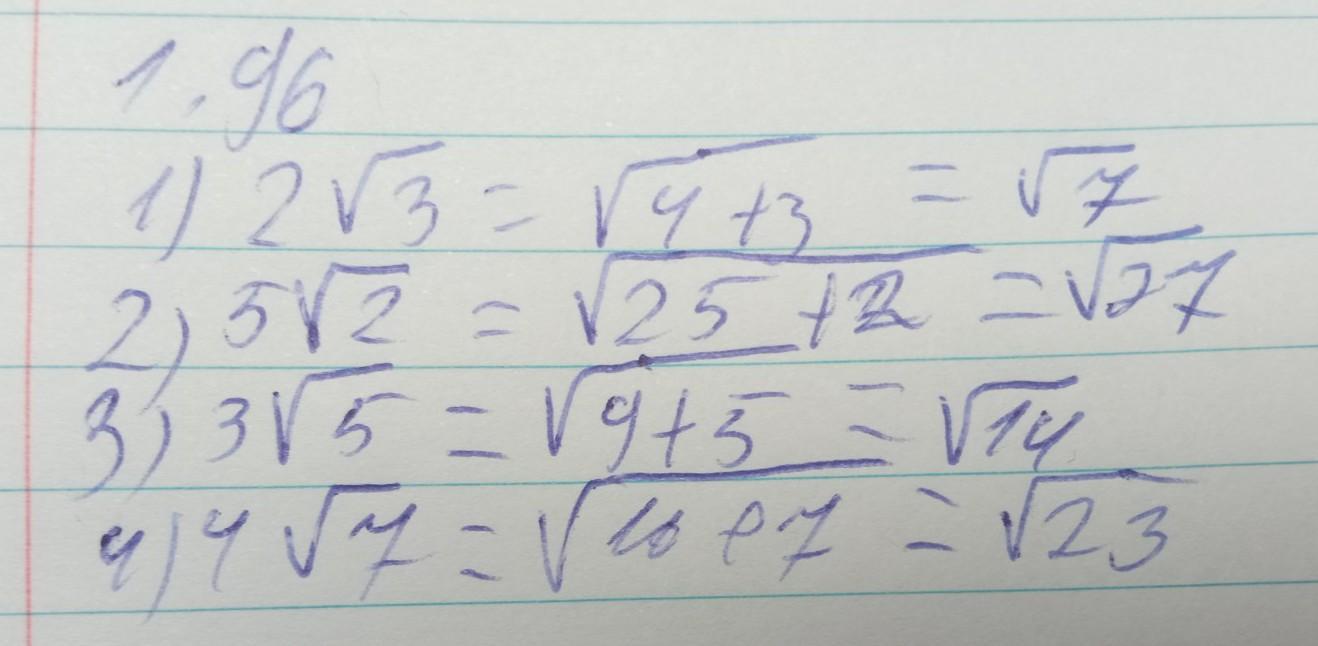 1.96
1) 2√3 = √4+3 = √7
2) 5√2 = √25+2 = √27
3) 3√5 = √9+5 = √14
4) 4√7 = √16+7 = √23